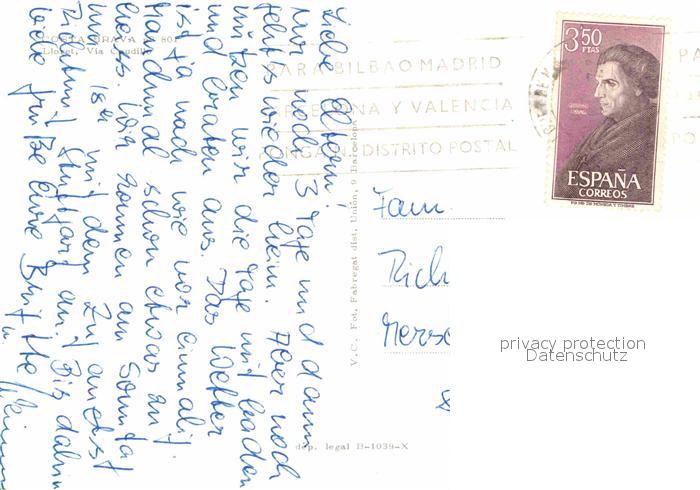 COSTA BRAVA 801
Lloret, Via Caudillo
Liebe Eltern!
Nur noch 3 Tage und dann
geht's wieder heim. Aber noch
nützen wir die Tage mit baden
und braten aus. Das Wetter
ist ja nach wie vor einmalig.
Manchmal schon etwas zu
heiss. Wir kommen am Sonntag
um 18 mit dem Zug
in Stuttgart an. Bis dahin
liebe Grüße Eure Brigitte
V. C. Fot. Fabregat dist. Unión, 9 Barcelona
dep. legal B-1039-X
PARA BILBAO MADRID
Y VALENCIA
PONGA N. DISTRITO POSTAL
PA
PO
3,50
PTAS
ESPAÑA
CORREOS
Fam.
Rich
Merse
8
privacy protection
Datenschutz